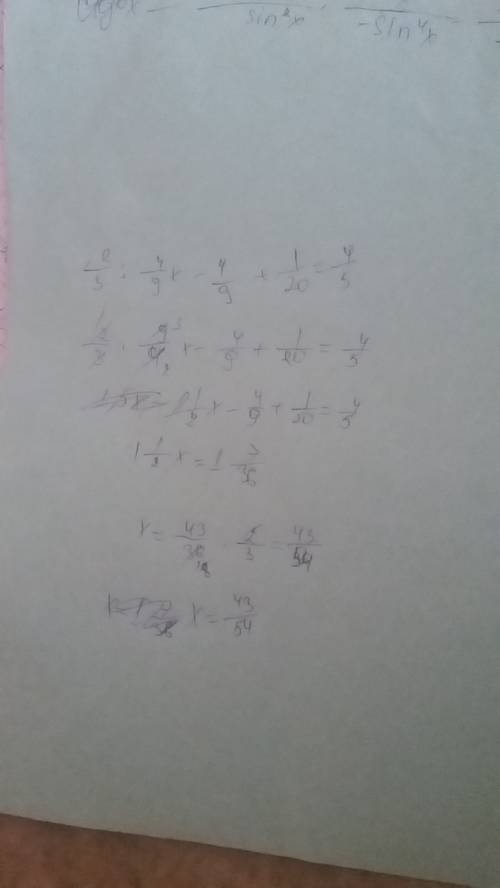 sin²x -sin⁴x
2/3 : 4/9 x - 4/9 + 1/20 = 4/5
2/3 · 9/4 x - 4/9 + 1/20 = 4/5
1/2 x - 4/9 + 1/20 = 4/5
1 1/2 x = 1 7/36
x = 43/36 · 2/3 = 43/54
x = 43/54